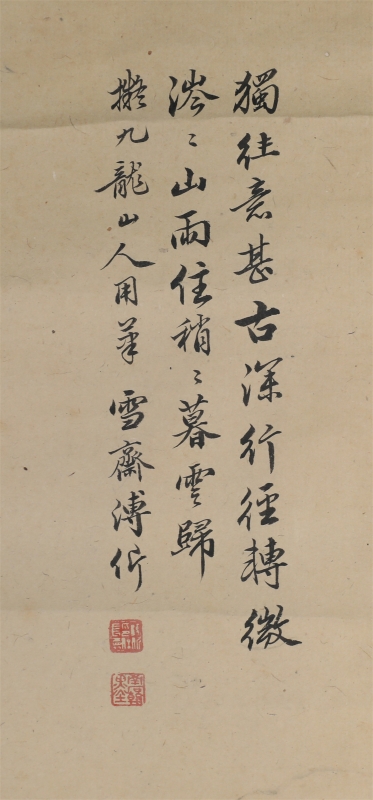 獨往意甚古深行徑轉微
涔〻山雨住稍〻暮雲歸
擬九龍山人用筆 雪齋溥伒